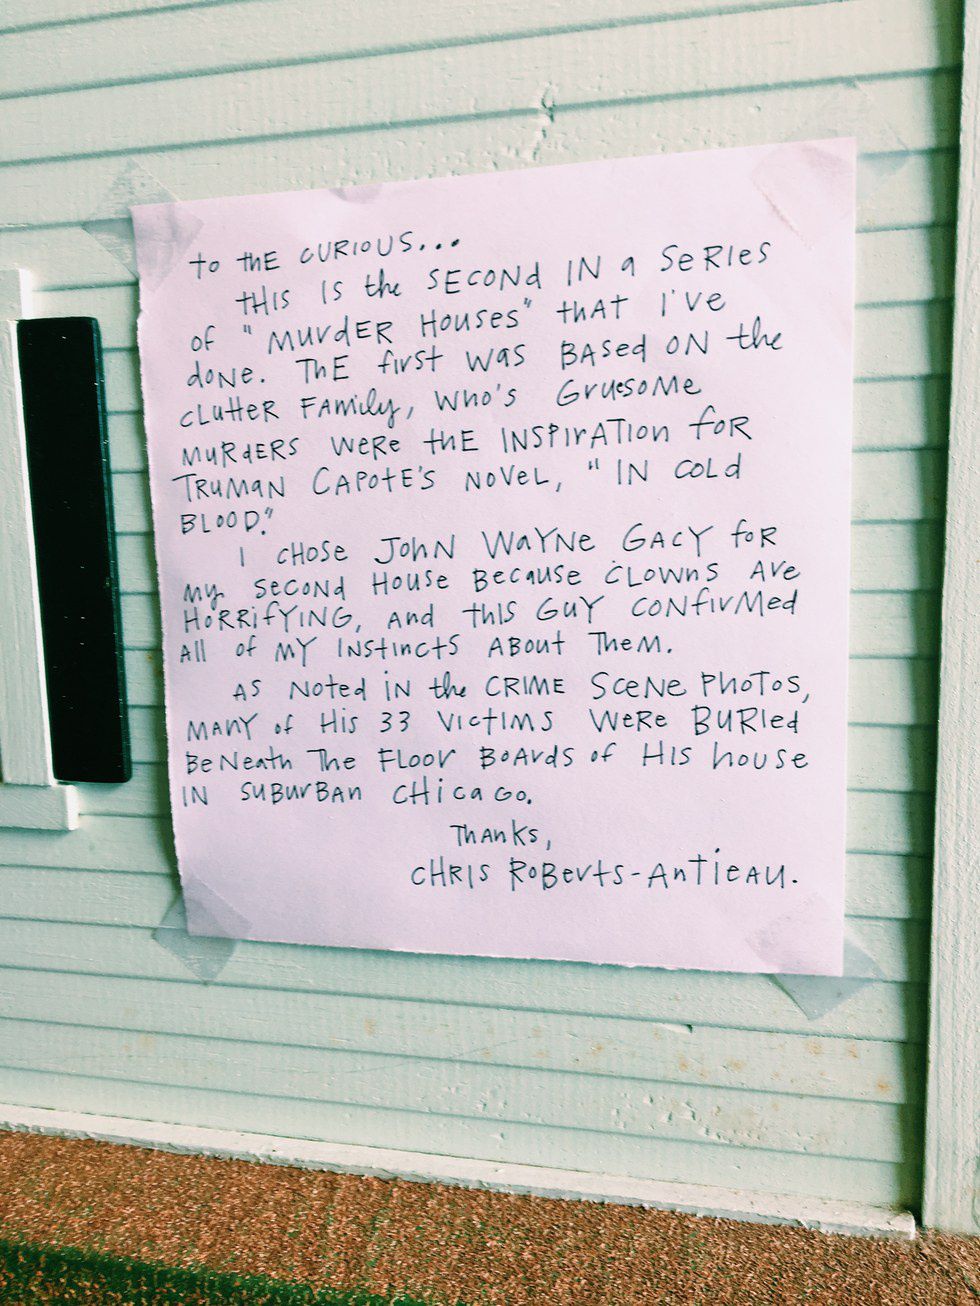 to thE CURIOUS...
THIS IS the SECONd IN a SeRIES
of "MURdER HOUSES" thAT I'VE
doNE. ThE first WAS BASed ON the
CLUttER FAMily, WHO'S GRUESOME
MURdERS WERE thE INSPIRATION foR
TRUMAN CAPOtE'S NOVEL, "IN COLd
BLOOD."
I CHOSE JOHN WAYNE GACY foR
my SECONd HOUSE BECAUSE CLOWNS ARE
HORRIfYING, ANd tHIS GUY CONfIRMEd
All of MY INSTINCTS ABOUT THEM.
AS NOTEd IN the CRIME SCENE PHOTOS,
MANY of HIS 33 VICTIMS WERE BURIEd
BENEAth THE FLOOR BOARdS of HIS hOUSE
IN SUBURBAN CHICAGO.
THANKS,
CHRIS ROBERTS-ANTIEAU.